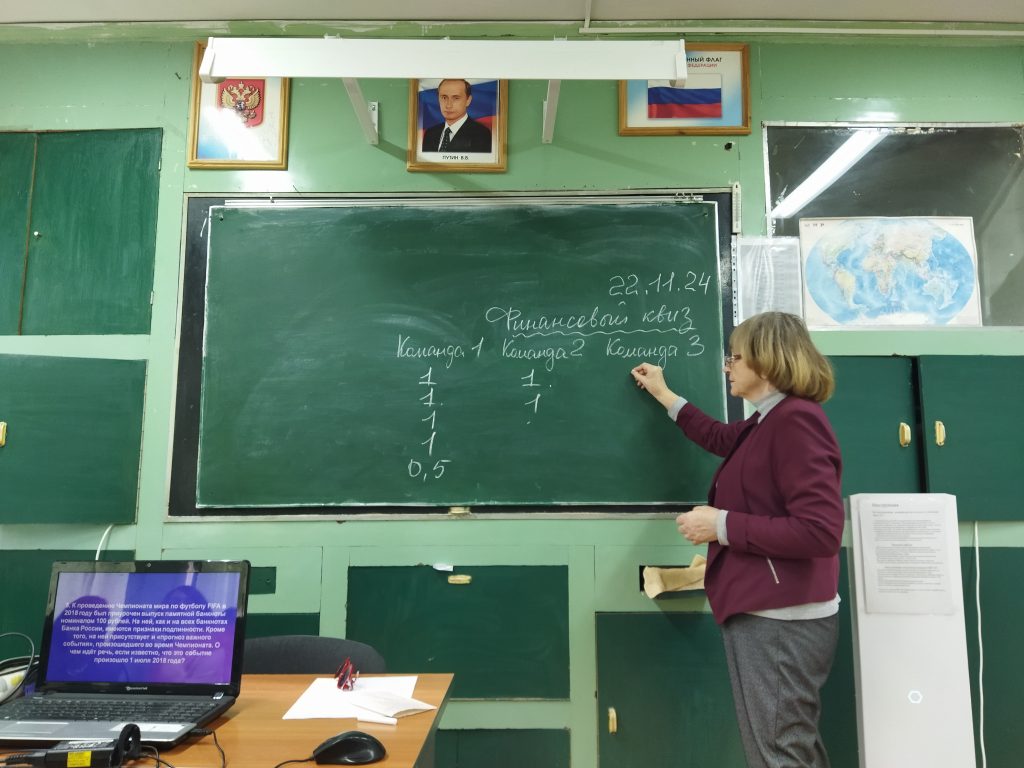 ННЫЙ ФЛАГ
ФЕДЕРАЦИИ
ПУТИН В.В.
МИР
22.11.24
Финансовый квиз
Команда 1 Команда 2 Команда 3
1 1.
1. 1
1
1
0,5
5. К проведению Чемпионата мира по футболу FIFA в
2018 году был приурочен выпуск памятной банкноты
номиналом 100 рублей. На ней, как и на всех банкнотах
Банка России, имеются признаки подлинности. Кроме
того, на ней присутствует и «прогноз важного
события», произошедшего во время Чемпионата. О
чем идёт речь, если известно, что это событие
произошло 1 июля 2018 года?